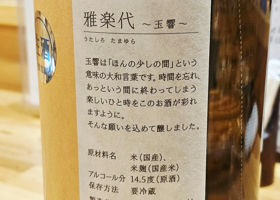 酒
雅楽代 〜玉響〜
うたしろ　たまゆら
玉響は「ほんの少しの間」という
意味の大和言葉です。時間を忘れ、
あっという間に終わってしまう
楽しいひと時をこのお酒が彩れ
ますように。
そんな願いを込めて醸しました。
原材料名　米(国産)、
米麹(国産米)
アルコール分　14.5度(原酒)
保存方法　要冷蔵